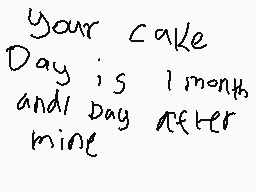 your cake
Day is 1 month
and 1 Day after
mine